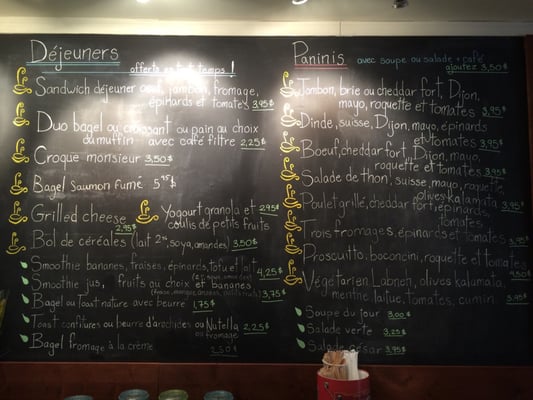 Déjeuners
offerts en tout temps !
Sandwich déjeuner oeuf, jambon, fromage,
épinards et tomates 3,95$
Duo bagel ou croissant ou pain au choix
ou muffin avec café filtre 2,25$
Croque monsieur 3,50$
Bagel saumon fumé 5,95$
Grilled cheese
2,95$
Yogourt granola et 2,95$
coulis de petits fruits
Bol de céréales (lait 2%, soya, amandes) 3,50$
Smoothie bananes, fraises, épinards, tofu et lait 4,25$
Smoothie jus, fruits au choix et bananes
3,75$
Bagel ou Toast nature avec beurre 1,75$
Toast confitures ou beurre d'arachides ou Nutella
ou fromage 2,25$
Bagel fromage à la crème 2,50$
Paninis
avec soupe ou salade + café
ajoutez 3,50$
Jambon, brie ou cheddar fort, Dijon,
mayo, roquette et tomates 3,95$
Dinde, suisse, Dijon, mayo, épinards
et tomates 3,95$
Boeuf, cheddar fort, Dijon, mayo,
roquette et tomates 3,95$
Salade de thon, suisse, mayo, roquette,
olives kalamata 3,95$
Poulet grillé, cheddar fort, épinards,
tomates,
Trois fromages, épinards et tomates 3,95$
Prosciutto, boconcini, roquette et tomates
4,50$
Végétarien Labneh, olives kalamata,
menthe, laitue, tomates, cumin 3,95$
Soupe du jour 3,00$
Salade verte 3,25$
Salade césar 3,95$